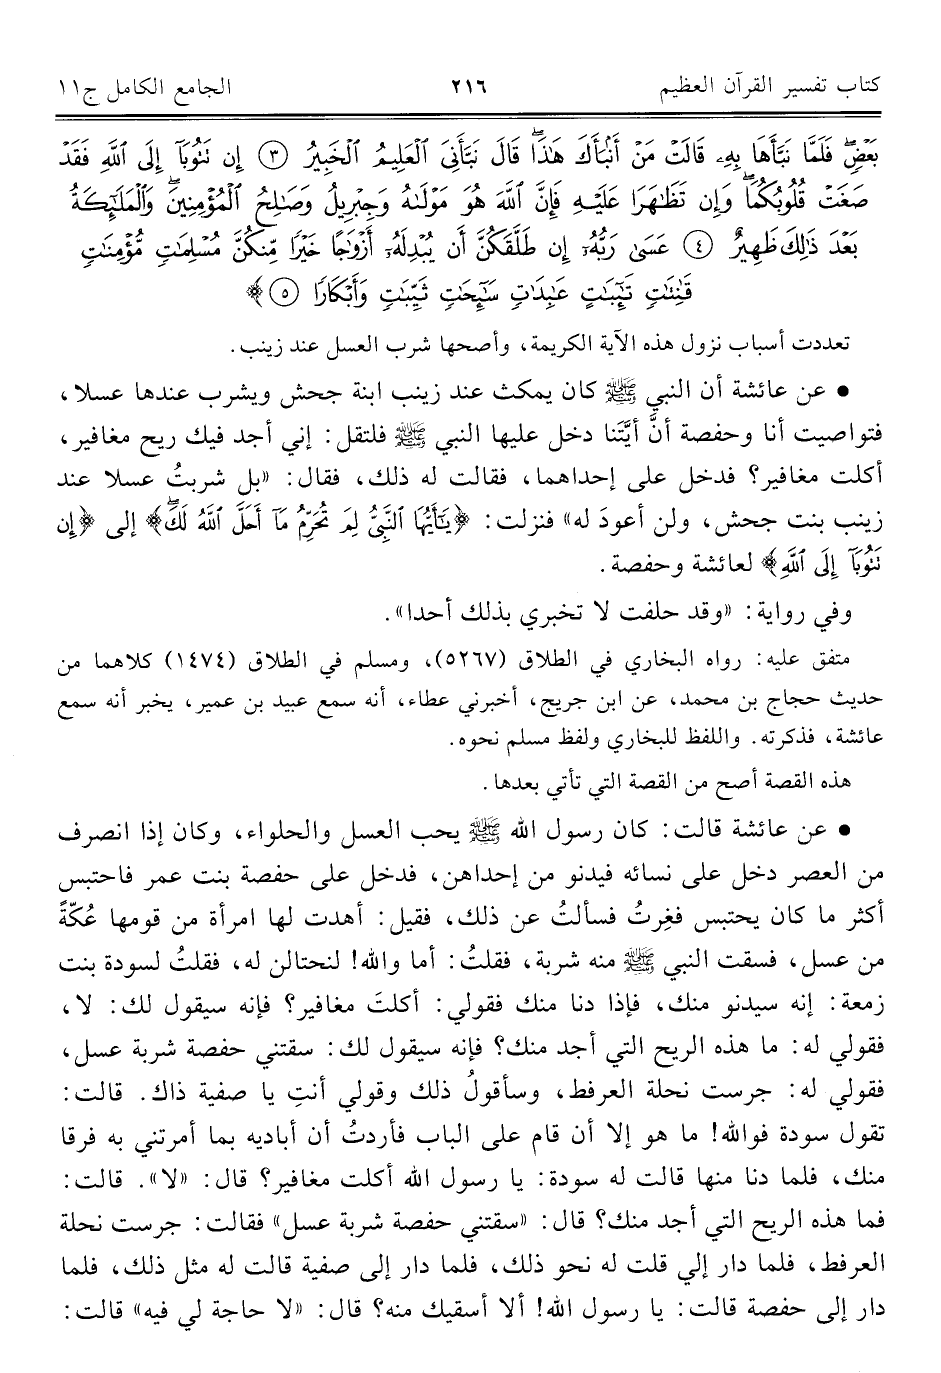 كتاب تفسير القرآن العظيم ٢١٦ الجامع الكامل ج١١
بَعْضٍۖ فَلَمَّا نَبَّأَهَا بِهِۦ قَالَتْ مَنْ أَنۢبَأَكَ هَٰذَاۖ قَالَ نَبَّأَنِىَ ٱلْعَلِيمُ ٱلْخَبِيرُ ﴿٣﴾ إِن تَتُوبَآ إِلَى ٱللَّهِ فَقَدْ
صَغَتْ قُلُوبُكُمَاۖ وَإِن تَظَٰهَرَا عَلَيْهِ فَإِنَّ ٱللَّهَ هُوَ مَوْلَىٰهُ وَجِبْرِيلُ وَصَٰلِحُ ٱلْمُؤْمِنِينَۖ وَٱلْمَلَٰٓئِكَةُ
بَعْدَ ذَٰلِكَ ظَهِيرٌ ﴿٤﴾ عَسَىٰ رَبُّهُۥٓ إِن طَلَّقَكُنَّ أَن يُبْدِلَهُۥٓ أَزْوَٰجًا خَيْرًا مِّنكُنَّ مُسْلِمَٰتٍ مُّؤْمِنَٰتٍ
قَٰنِتَٰتٍ تَٰٓئِبَٰتٍ عَٰبِدَٰتٍ سَٰٓئِحَٰتٍ ثَيِّبَٰتٍ وَأَبْكَارًا ﴿٥﴾ ﴾
تعددت أسباب نزول هذه الآية الكريمة، وأصحها شرب العسل عند زينب.
• عن عائشة أن النبي ﷺ كان يمكث عند زينب ابنة جحش ويشرب عندها عسلا،
فتواصيت أنا وحفصة أنَّ أيَّتَنا دخل عليها النبي ﷺ فلتقل: إني أجد فيك ريح مغافير،
أكلت مغافير؟ فدخل على إحداهما، فقالت له ذلك، فقال: «بل شربتُ عسلا عند
زينب بنت جحش، ولن أعودَ له» فنزلت: ﴿يَٰٓأَيُّهَا ٱلنَّبِىُّ لِمَ تُحَرِّمُ مَآ أَحَلَّ ٱللَّهُ لَكَۖ﴾ إلى ﴿إِن
تَتُوبَآ إِلَى ٱللَّهِ﴾ لعائشة وحفصة.
وفي رواية: «وقد حلفت لا تخبري بذلك أحدا».
متفق عليه: رواه البخاري في الطلاق (٥٢٦٧)، ومسلم في الطلاق (١٤٧٤) كلاهما من
حديث حجاج بن محمد، عن ابن جريج، أخبرني عطاء، أنه سمع عبيد بن عمير، يخبر أنه سمع
عائشة، فذكرته. واللفظ للبخاري ولفظ مسلم نحوه.
هذه القصة أصح من القصة التي تأتي بعدها.
• عن عائشة قالت: كان رسول الله ﷺ يحب العسل والحلواء، وكان إذا انصرف
من العصر دخل على نسائه فيدنو من إحداهن، فدخل على حفصة بنت عمر فاحتبس
أكثر ما كان يحتبس فغِرتُ فسألتُ عن ذلك، فقيل: أهدت لها امرأة من قومها عُكّةً
من عسل، فسقت النبي ﷺ منه شربة، فقلتُ: أما والله! لنحتالن له، فقلتُ لسودة بنت
زمعة: إنه سيدنو منك، فإذا دنا منك فقولي: أكلتَ مغافير؟ فإنه سيقول لك: لا،
فقولي له: ما هذه الريح التي أجد منك؟ فإنه سيقول لك: سقتني حفصة شربة عسل،
فقولي له: جرست نحلة العرفط، وسأقولُ ذلك وقولي أنتِ يا صفية ذاك. قالت:
تقول سودة فوالله! ما هو إلا أن قام على الباب فأردتُ أن أباديه بما أمرتني به فرقا
منك، فلما دنا منها قالت له سودة: يا رسول الله أكلت مغافير؟ قال: «لا». قالت:
فما هذه الريح التي أجد منك؟ قال: «سقتني حفصة شربة عسل» فقالت: جرست نحلة
العرفط، فلما دار إلي قلت له نحو ذلك، فلما دار إلى صفية قالت له مثل ذلك، فلما
دار إلى حفصة قالت: يا رسول الله! ألا أسقيك منه؟ قال: «لا حاجة لي فيه» قالت: